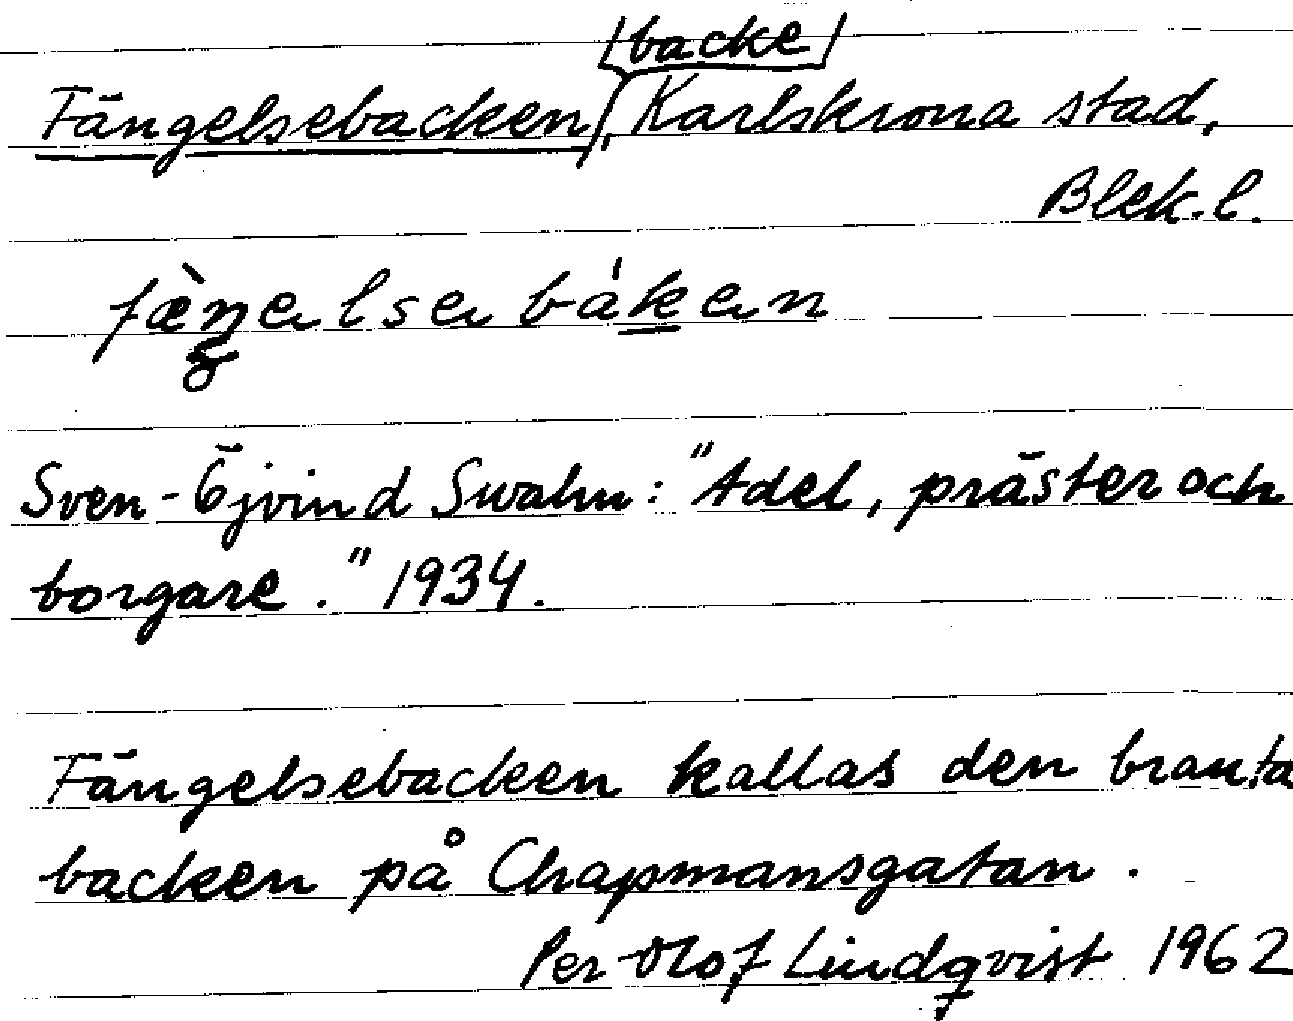 backe
Fängelsebacken, Karlskrona stad,
Blek. l.
Sven-Öjvind Swahn: "Adel, präster och
borgare." 1934.
Fängelsebacken kallas den branta
backen på Chapmansgatan.
Per-Olof Lindqvist 1962